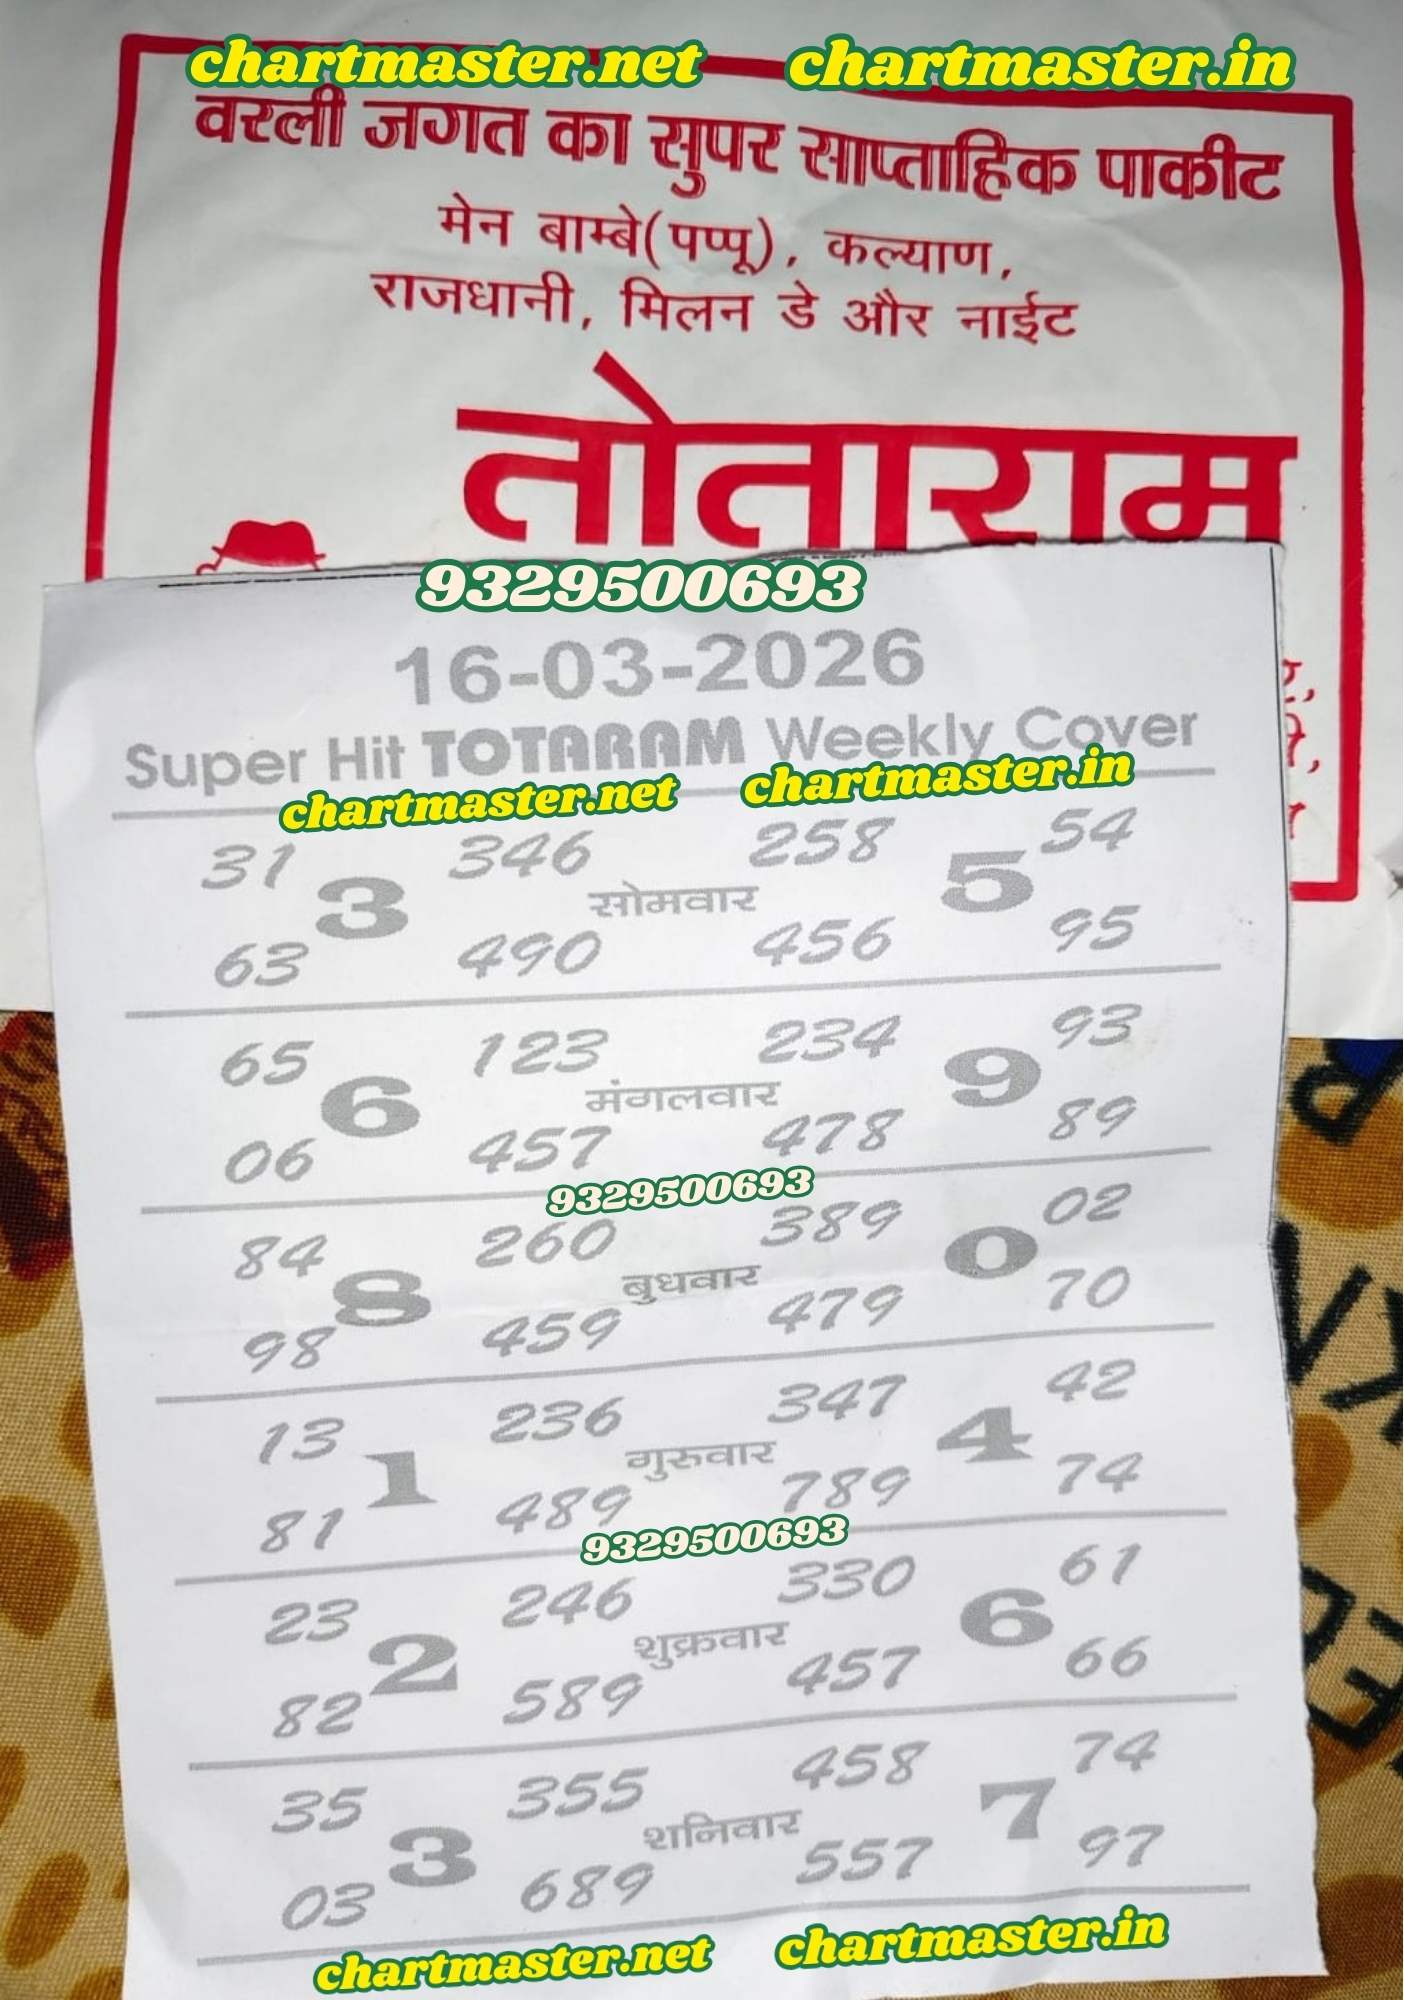 chartmaster.net chartmaster.in
वरली जगत का सुपर साप्ताहिक पाकीट
मेन बाम्बे(पप्पू), कल्याण,
राजधानी, मिलन डे और नाईट
तोताराम
9329500693
16-03-2026
Super Hit TOTARAM Weekly Cover
chartmaster.net chartmaster.in
31 346 258 54
3 सोमवार 5
63 490 456 95
65 123 234 93
6 मंगलवार 9
06 457 478 89
9329500693
84 260 389 02
8 बुधवार 0
98 459 479 70
13 236 347 42
1 गुरुवार 4
81 489 789 74
9329500693
23 246 330 61
2 शुक्रवार 6
82 589 457 66
35 355 458 74
3 शनिवार 7
03 689 557 97
chartmaster.net chartmaster.in